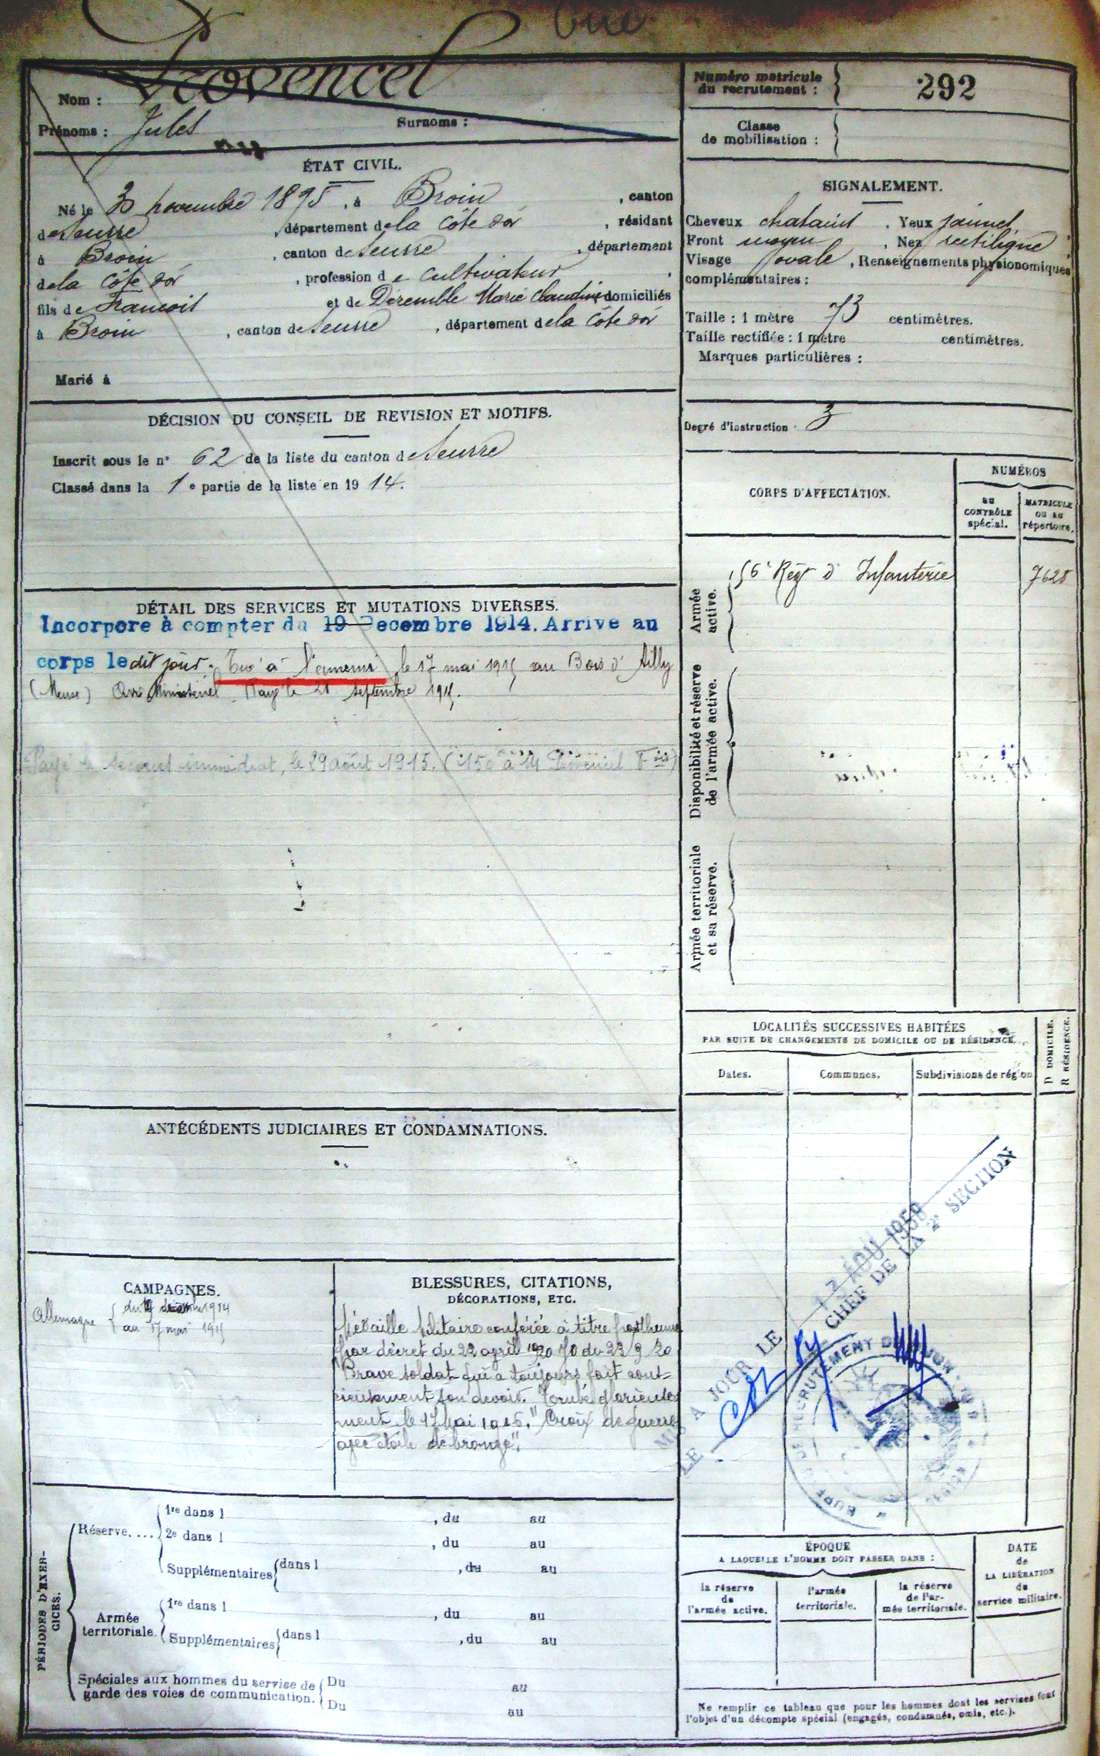 Tué
Provencel
Nom :
Prénoms : Jules Surnoms :
ÉTAT CIVIL.
Né le 30 novembre 1895, à Broin, canton
de Seurre, département de la Côte d'or, résidant
à Broin, canton de Seurre, département
de la Côte d'or, profession de cultivateur,
fils de Francois et de Deremble Marie Claudine domiciliés
à Broin, canton de Seurre, département de la Côte d'or
Marié à
DÉCISION DU CONSEIL DE REVISION ET MOTIFS.
Inscrit sous le n° 62 de la liste du canton de Seurre
Classé dans la 1e partie de la liste en 1914.
DÉTAIL DES SERVICES ET MUTATIONS DIVERSES.
Incorporé à compter du 19 Decembre 1914. Arrivé au
corps le dit jour. Tué à l'ennemi le 17 mai 1915 au Bois d'Ailly
(Meuse) Avis Ministériel du 21 septembre 1915.
Payé le secours immédiat, le 29 août 1915. (150 à M Provencel
ANTÉCÉDENTS JUDICIAIRES ET CONDAMNATIONS.
CAMPAGNES.
Allemagne { du 19 décembre 1914
au 17 mai 1915
BLESSURES, CITATIONS,
DÉCORATIONS, ETC.
Médaille Militaire conférée à titre posthume
par décret du 22 april 1920 JO du 22 9 20
"Brave soldat qui a toujours fait cons-
ciensement son devoir. Tombé glorieuse
ment le 17 Mai 1915." Croix de guerre
avec étoile de bronze".
PÉRIODES D'EXER-
CICES.
Réserve....
1re dans l , du au
2e dans l , du au
Supplémentaires { dans l , du au
Armée
territoriale.
1re dans l , du au
Supplémentaires { dans l , du au
Spéciales aux hommes du service de
garde des voies de communication.
Du au
Du au
Numéro matricule
du recrutement : 292
Classe
de mobilisation :
SIGNALEMENT.
Cheveux chatains. Yeux jaunes,
Front moyen, Nez rectiligne
Visage ovale, Renseignements physionomiques
complémentaires :
Taille : 1 mètre 73 centimètres.
Taille rectifiée : 1 mètre centimètres.
Marques particulières :
Degré d'instruction : 3
CORPS D'AFFECTATION.
NUMÉROS
AU
CONTRÔLE
spécial.
MATRICULE
OU AU
répertoire.
Armée
active.
56e Régt d'Infanterie 7628
Disponibilité et réserve
de l'armée active.
Armée territoriale
et sa réserve.
LOCALITÉS SUCCESSIVES HABITÉES
PAR SUITE DE CHANGEMENTS DE DOMICILE OU DE RÉSIDENCE.
Dates. Communes. Subdivisions de région
D DOMICILE.
R RÉSIDENCE.
MIS A JOUR LE 12 AOU 1958
LE CHEF DE LA 2e SECTION
BUREAU DE RECRUTEMENT DE DIJON
ÉPOQUE
A LAQUELLE L'HOMME DOIT PASSER DANS :
la réserve
de
l'armée active.
l'armée
territoriale.
la réserve
de l'ar-
mée territoriale.
DATE
de
LA LIBÉRATION
du
service militaire.
Ne remplir ce tableau que pour les hommes dont les services font
l'objet d'un décompte spécial (engagés, condamnés, omis, etc.).